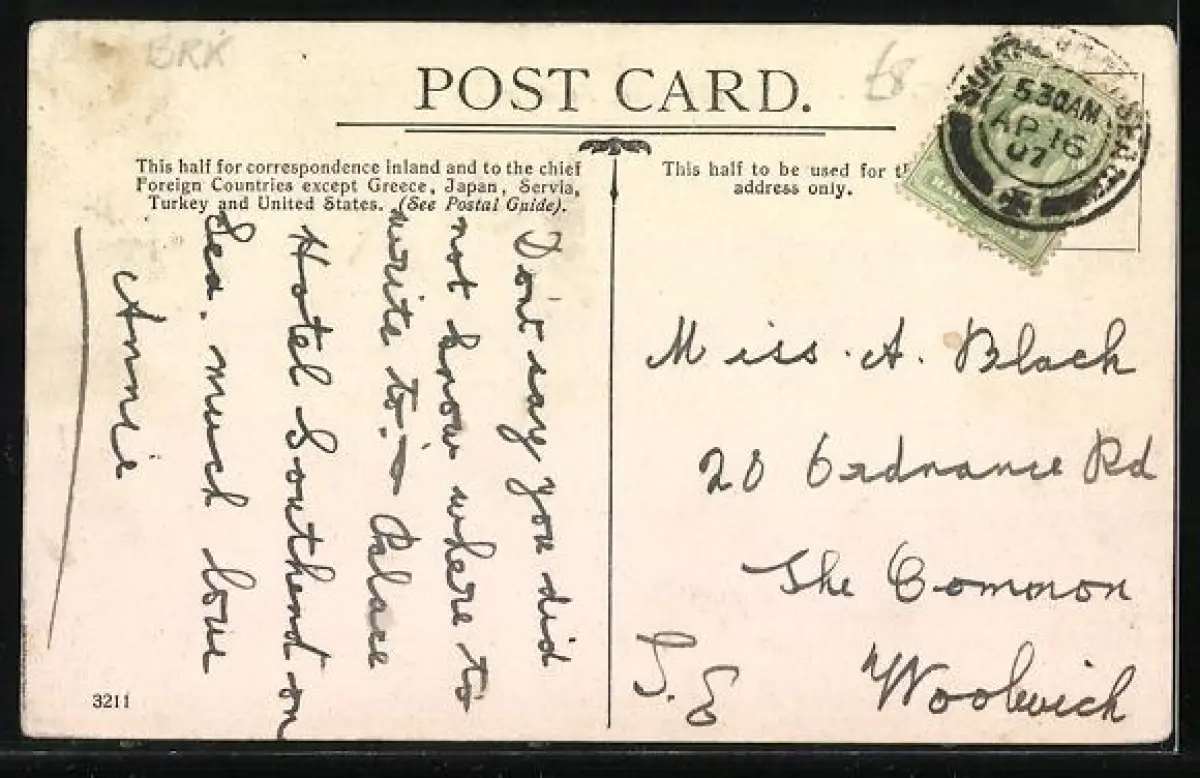 BRK
£8
POST CARD.
This half for correspondence inland and to the chief
Foreign Countries except Greece, Japan, Servia,
Turkey and United States. (See Postal Guide).
This half to be used for
address only.
5 30AM
AP 16
07
Don't say you did
not know where to
write to:- Palace
Hotel Southend on
Sea. much love
Annie
Miss. A. Black
20 Ordnance Rd
The Common
Woolwich
S.E
3211